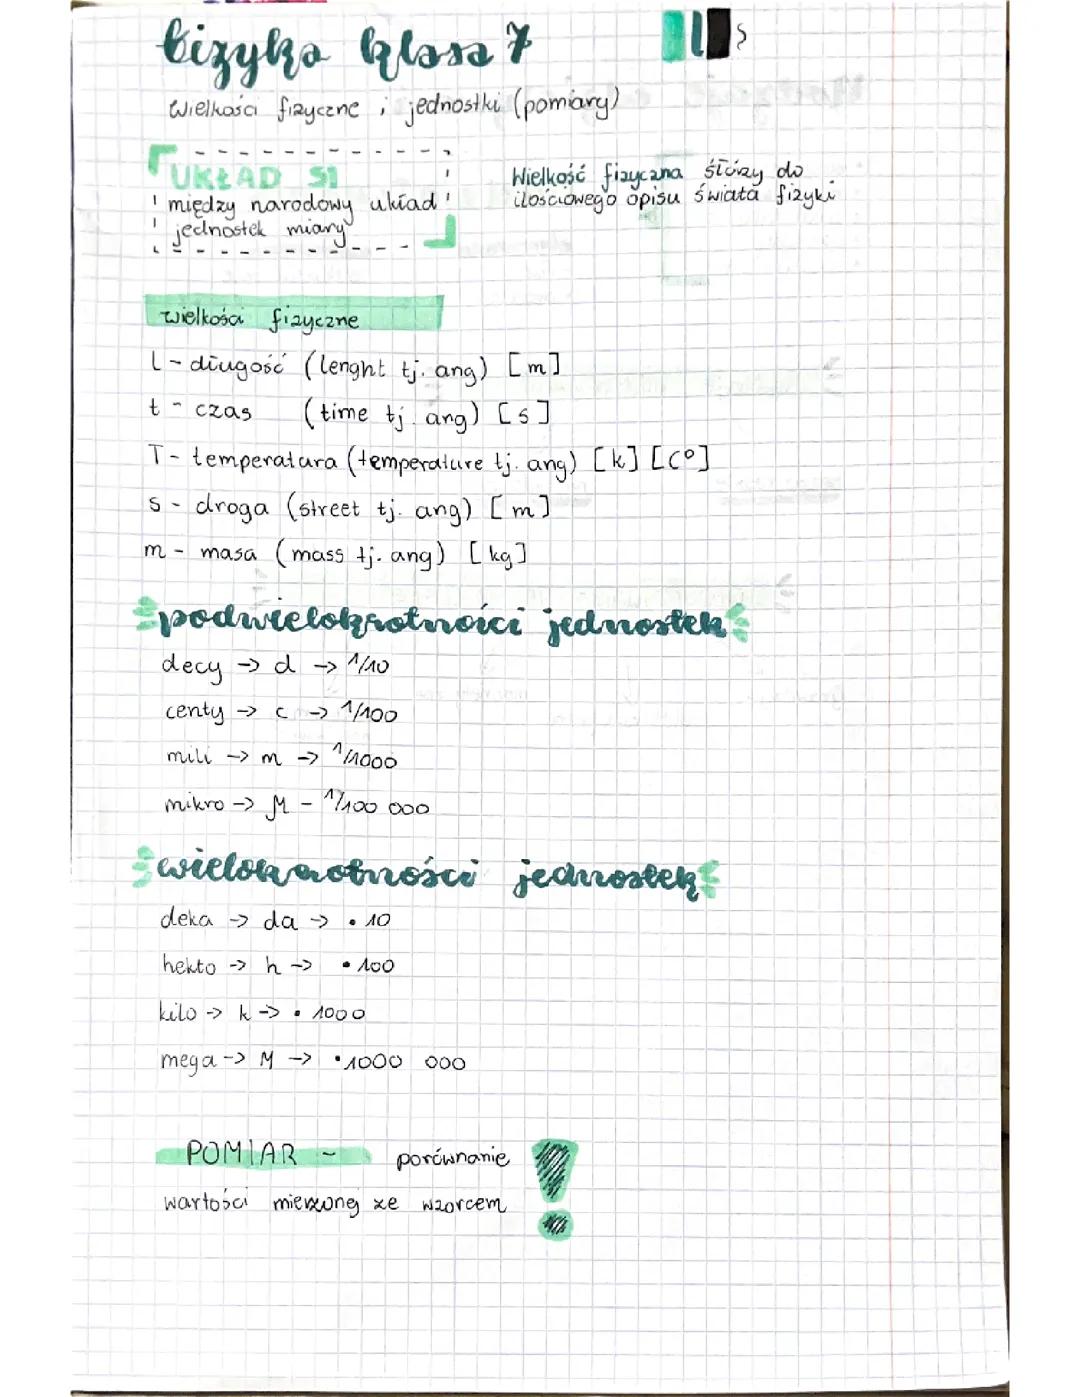 fizyka klasa 7
Wielkości fizyczne i jednostki (pomiary)
UKŁAD SI
między narodowy układ
jednostek miary
Wielkość fizyczna służy do
ilościowego opisu świata fizyki
wielkości fizyczne
l - długość (lenght tj. ang) [m]
t - czas (time tj. ang) [s]
T - temperatura (temperature tj. ang) [k] [C°]
s - droga (street tj. ang) [m]
m - masa (mass tj. ang) [kg]
podwielokrotności jednostek
decy -> d -> 1/10
centy -> c -> 1/100
mili -> m -> 1/1000
mikro -> M - 1/100 000
wielokrotności jednostek
deka -> da -> • 10
hekto -> h -> • 100
kilo -> k -> • 1000
mega -> M -> • 1000 000
POMIAR - porównanie
wartości mierzonej ze wzorcem
!